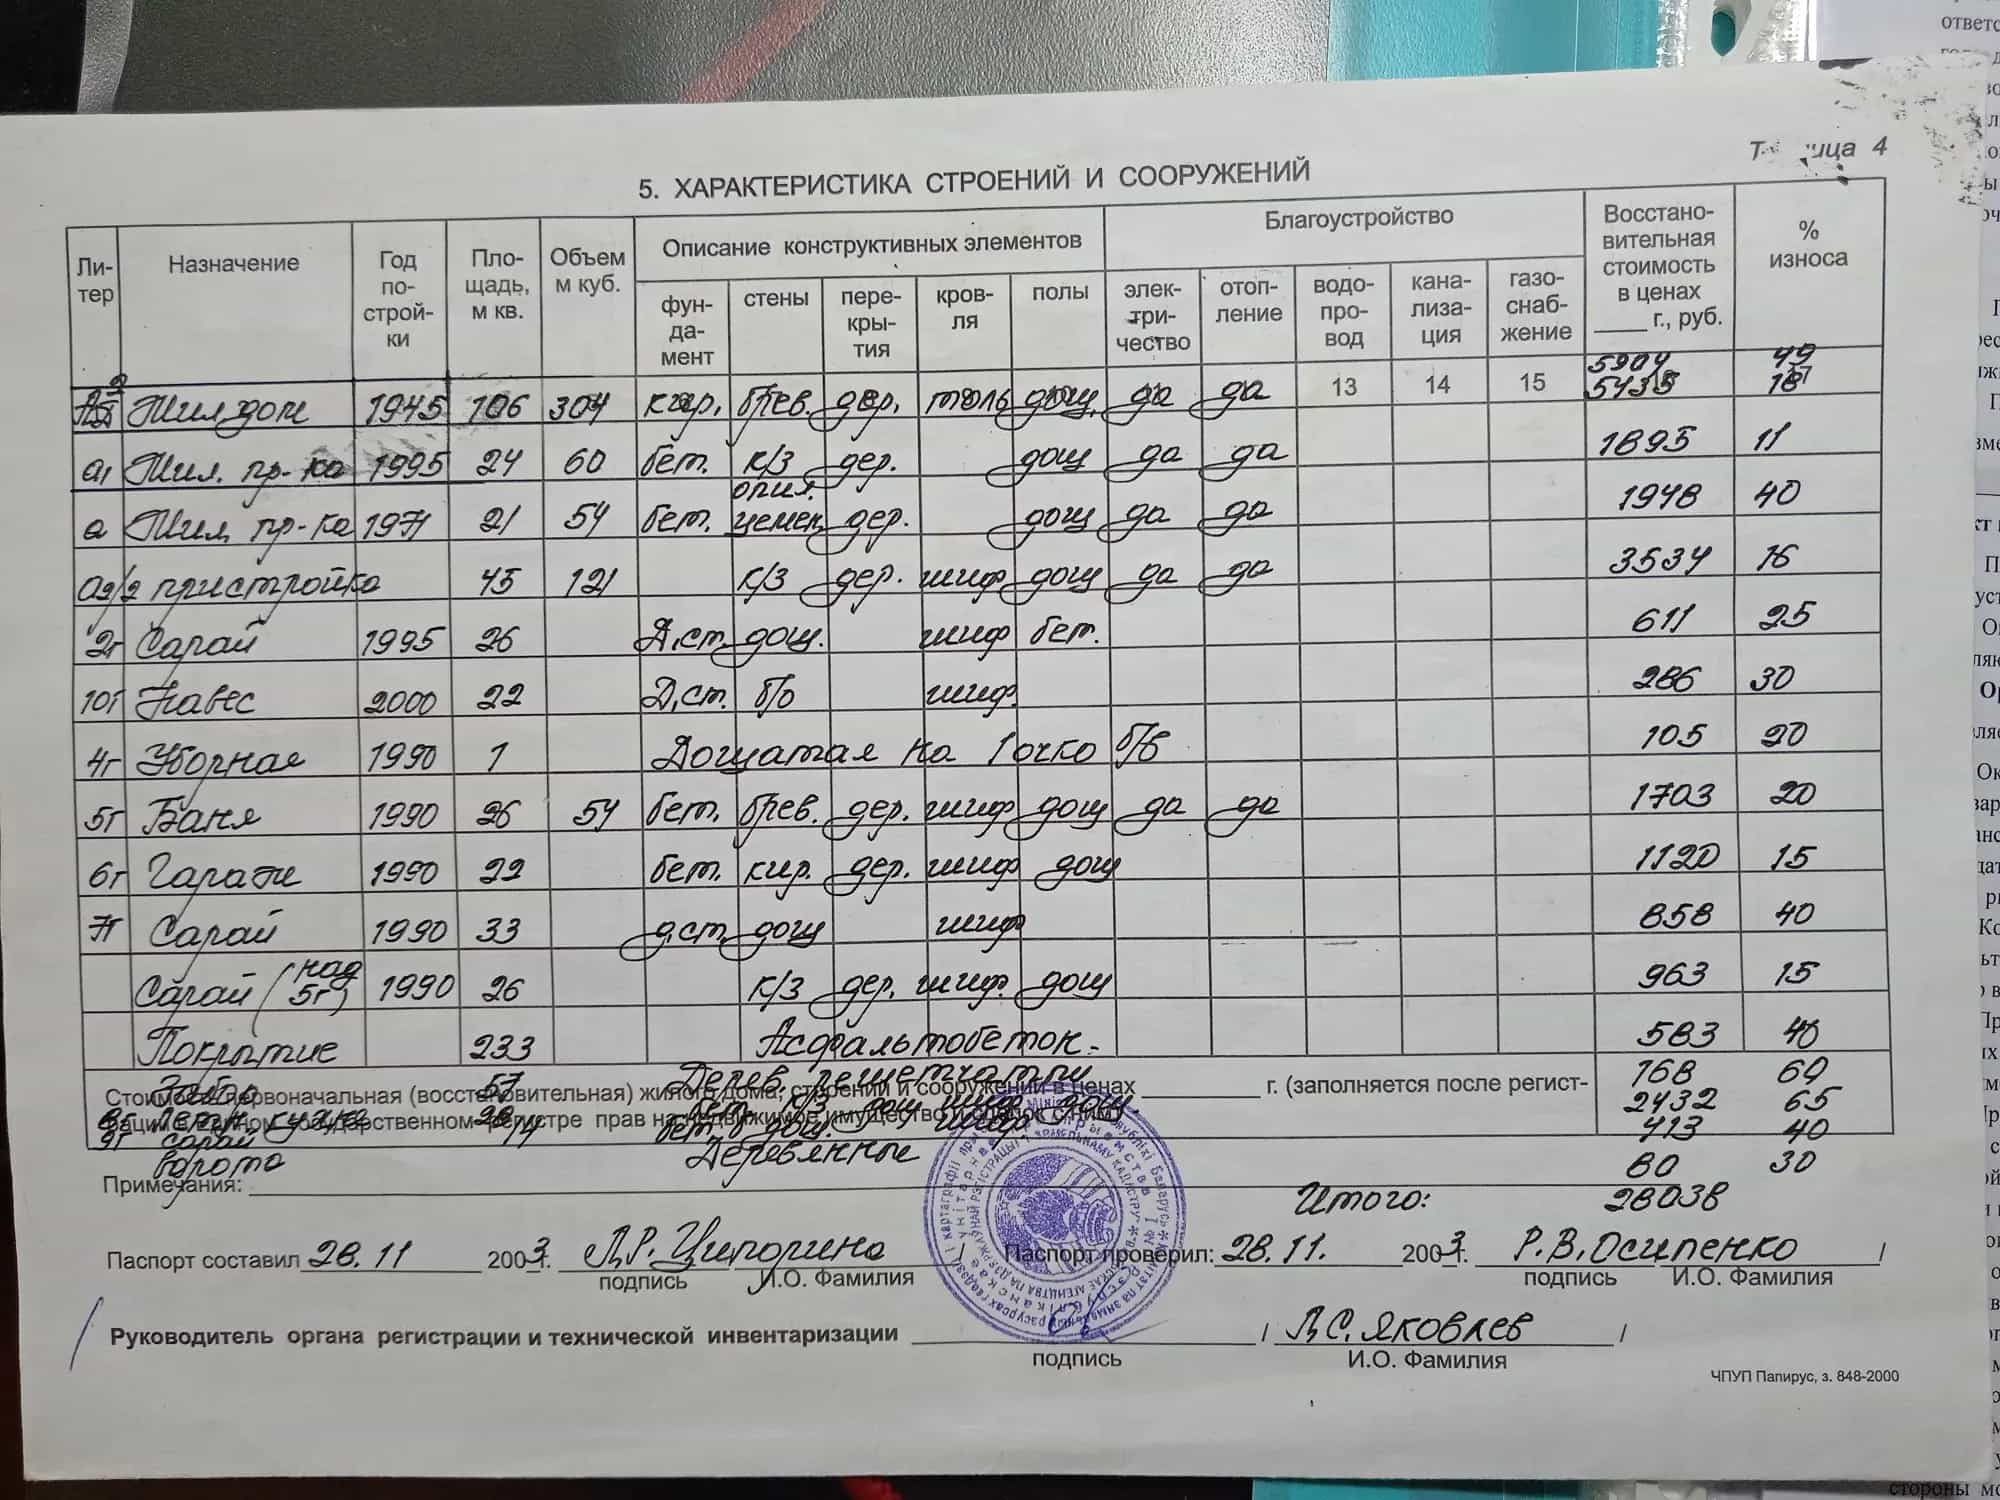 Таблица 4
5. ХАРАКТЕРИСТИКА СТРОЕНИЙ И СООРУЖЕНИЙ
Ли-тер | Назначение | Год по-строй-ки | Пло-щадь, м кв. | Объем м куб. | Описание конструктивных элементов | Благоустройство | Восстано-вительная стоимость в ценах ____ г., руб. | % износа
фун-да-мент | стены | пере-кры-тия | кров-ля | полы | элек-три-чество | отоп-ление | водо-про-вод | кана-лиза-ция | газо-снаб-жение
5904 49
Жил дом 1945 106 304 кир. брев. дер. толь дощ. да да 13 14 15 5435 18
а1 Жил. пр-ка 1995 24 60 бет. к/з дер. дощ да да 1895 11
а Жил. пр-ка 1971 21 54 бет. опил. цемен. дер. дощ да да 1948 40
а2/2 пристройка 45 121 к/з дер. шиф дощ да да 3534 16
2г Сарай 1995 26 Д.ст. дощ. шиф бет. 611 25
10г Навес 2000 22 Д.ст. б/о шиф. 286 30
4г Уборная 1990 1 Дощатая на 1 очко б/в 105 20
5г Баня 1990 26 54 бет. брев. дер. шиф дощ да да 1703 20
6г Гараж 1990 22 бет. кир. дер. шиф дощ 1120 15
7г Сарай 1990 33 д.ст. дощ шиф 858 40
Сарай (над 5г) 1990 26 к/з дер. шиф. дощ 963 15
Покрытие 233 Асфальтобетон- 583 40
Забор 57 Дерев. решетчатый 168 60
Стоимость первоначальная (восстановительная) жилого дома, строений и сооружений в ценах ____ г. (заполняется после регист-
8г Летн. кухня 28 бет. к/з дощ шиф дощ. 2432 65
рации в Едином государственном регистре прав на недвижимое имущество и сделок с ним)
9г сарай 14 бет. дощ. шиф 413 40
ворота Деревянные 80 30
Примечания:
Итого: 28038
Паспорт составил 28.11 2003 г. Л.Р. Ципорина / Паспорт проверил: 28.11. 2003 г. Р.В. Осипенко /
подпись И.О. Фамилия подпись И.О. Фамилия
Руководитель органа регистрации и технической инвентаризации / Л.С. Яковлев /
подпись И.О. Фамилия
ЧПУП Папирус, з. 848-2000